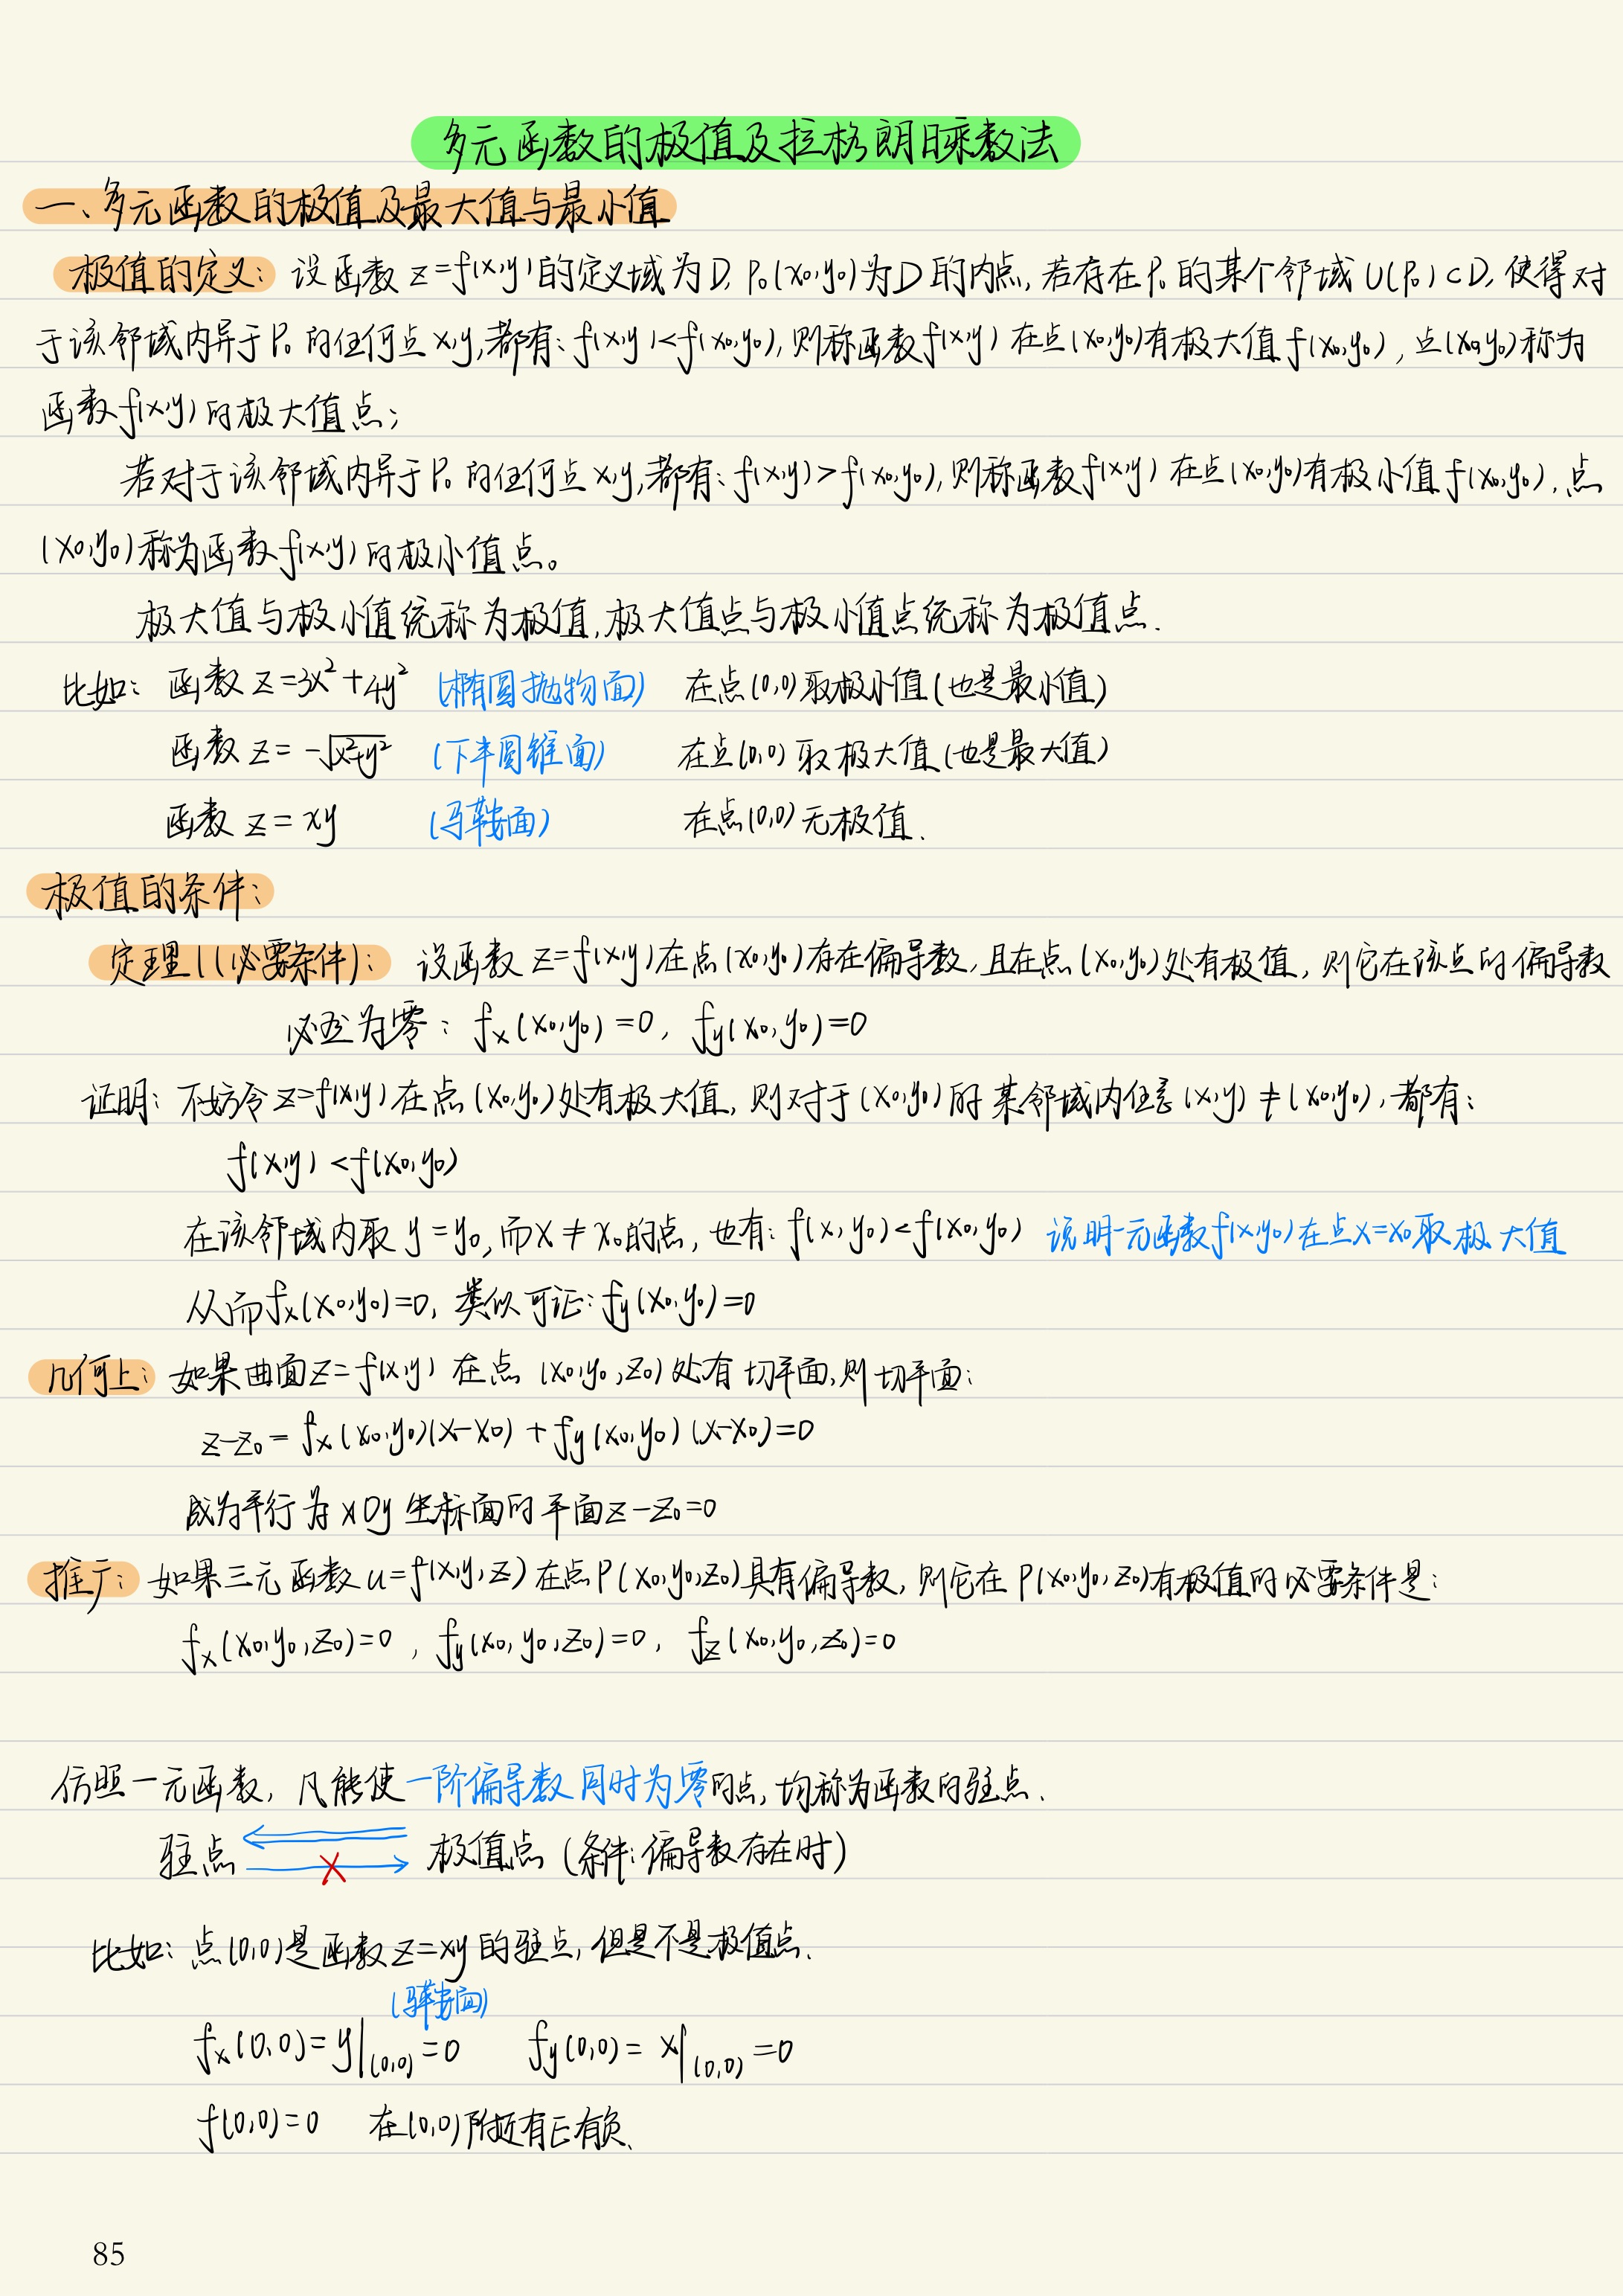 多元函数的极值及拉格朗日乘数法
一、多元函数的极值及最大值与最小值
极值的定义: 设函数 z=f(x,y)的定义域为D, P₀(x₀,y₀)为D的内点, 若存在P₀的某个邻域 U(P₀)⊂D, 使得对
于该邻域内异于P₀的任何点x,y,都有: f(x,y)<f(x₀,y₀), 则称函数f(x,y) 在点(x₀,y₀)有极大值 f(x₀,y₀), 点(x₀,y₀)称为
函数f(x,y)的极大值点;
若对于该邻域内异于P₀的任何点x,y,都有: f(x,y)>f(x₀,y₀), 则称函数f(x,y) 在点(x₀,y₀)有极小值 f(x₀,y₀), 点
(x₀,y₀)称为函数f(x,y)的极小值点。
极大值与极小值统称为极值,极大值点与极小值点统称为极值点.
比如: 函数 z=3x²+4y² (椭圆抛物面) 在点(0,0)取极小值(也是最小值)
函数 z=-√x²+y² (下半圆锥面) 在点(0,0)取极大值(也是最大值)
函数 z=xy (马鞍面) 在点(0,0)无极值.
极值的条件:
定理1(必要条件): 设函数 z=f(x,y)在点(x₀,y₀)存在偏导数,且在点(x₀,y₀)处有极值, 则它在该点的偏导数
必然为零: fₓ(x₀,y₀)=0, f_y(x₀,y₀)=0
证明: 不妨令z=f(x,y)在点(x₀,y₀)处有极大值, 则对于(x₀,y₀)的某邻域内任意(x,y)≠(x₀,y₀), 都有:
f(x,y)<f(x₀,y₀)
在该邻域内取 y=y₀,而x≠x₀的点, 也有: f(x,y₀)<f(x₀,y₀) 说明一元函数f(x,y₀)在点x=x₀取极大值
从而fₓ(x₀,y₀)=0, 类似可证: f_y(x₀,y₀)=0
几何上: 如果曲面z=f(x,y) 在点 (x₀,y₀,z₀)处有切平面,则切平面:
z-z₀=fₓ(x₀,y₀)(x-x₀)+f_y(x₀,y₀)(x-x₀)=0
成为平行为xOy坐标面的平面z-z₀=0
推广: 如果三元函数u=f(x,y,z)在点P(x₀,y₀,z₀)具有偏导数, 则它在P(x₀,y₀,z₀)有极值的必要条件是:
fₓ(x₀,y₀,z₀)=0, f_y(x₀,y₀,z₀)=0, f_z(x₀,y₀,z₀)=0
仿照一元函数, 凡能使一阶偏导数同时为零的点,均称为函数的驻点.
驻点 极值点 (条件:偏导数存在时)
比如: 点(0,0)是函数z=xy的驻点,但是不是极值点.
(马鞍面)
fₓ(0,0)=y|(0,0)=0 f_y(0,0)=x|(0,0)=0
f(0,0)=0 在(0,0)附近有正有负.
85